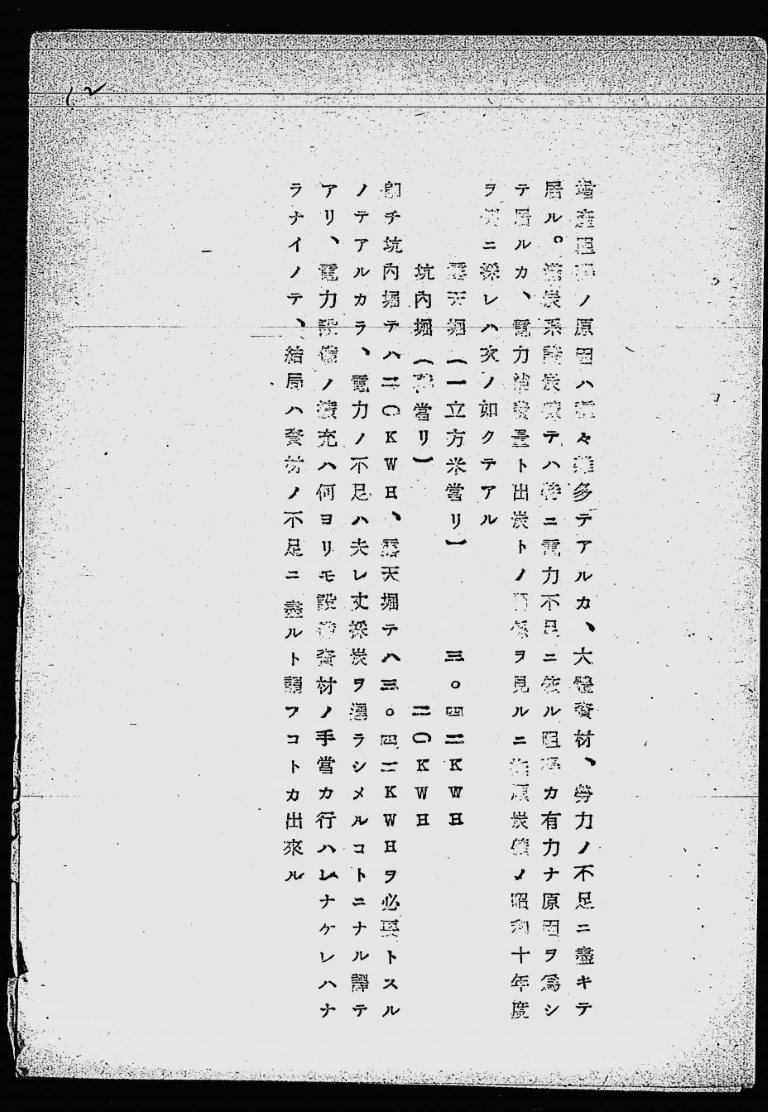 12
増産阻碍ノ原因ハ種々雑多テアルカ、大體資材、勞力ノ不足ニ盡キテ
居ル。滿炭系諸炭礦テハ特ニ電力不足ニ依ル阻碍カ有力ナ原因ヲ爲シ
テ居ルカ、電力消費量ト出炭トノ關係ヲ見ルニ 原炭礦ノ昭和十年度
ヲ例ニ採レハ次ノ如クテアル
露天堀(一立方米當リ) 三。四二KWH
坑內堀( 當リ) 二〇KWH
卽チ坑內堀テハ二〇KWH、露天堀テハ三。四二KWHヲ必要トスル
ノテアルカラ、電力ノ不足ハ夫レ丈採炭ヲ澁ラシメルコトニナル譯テ
アリ、電力設備ノ擴充ハ何ヨリモ設備資材ノ手當カ行ハレナケレハナ
ラナイノテ、結局ハ資材ノ不足ニ盡ルト謂フコトカ出來ル